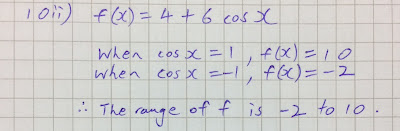 10ii) f(x) = 4 + 6 cos x
When cos x = 1, f(x) = 10
When cos x = -1, f(x) = -2
∴ The range of f is -2 to 10.